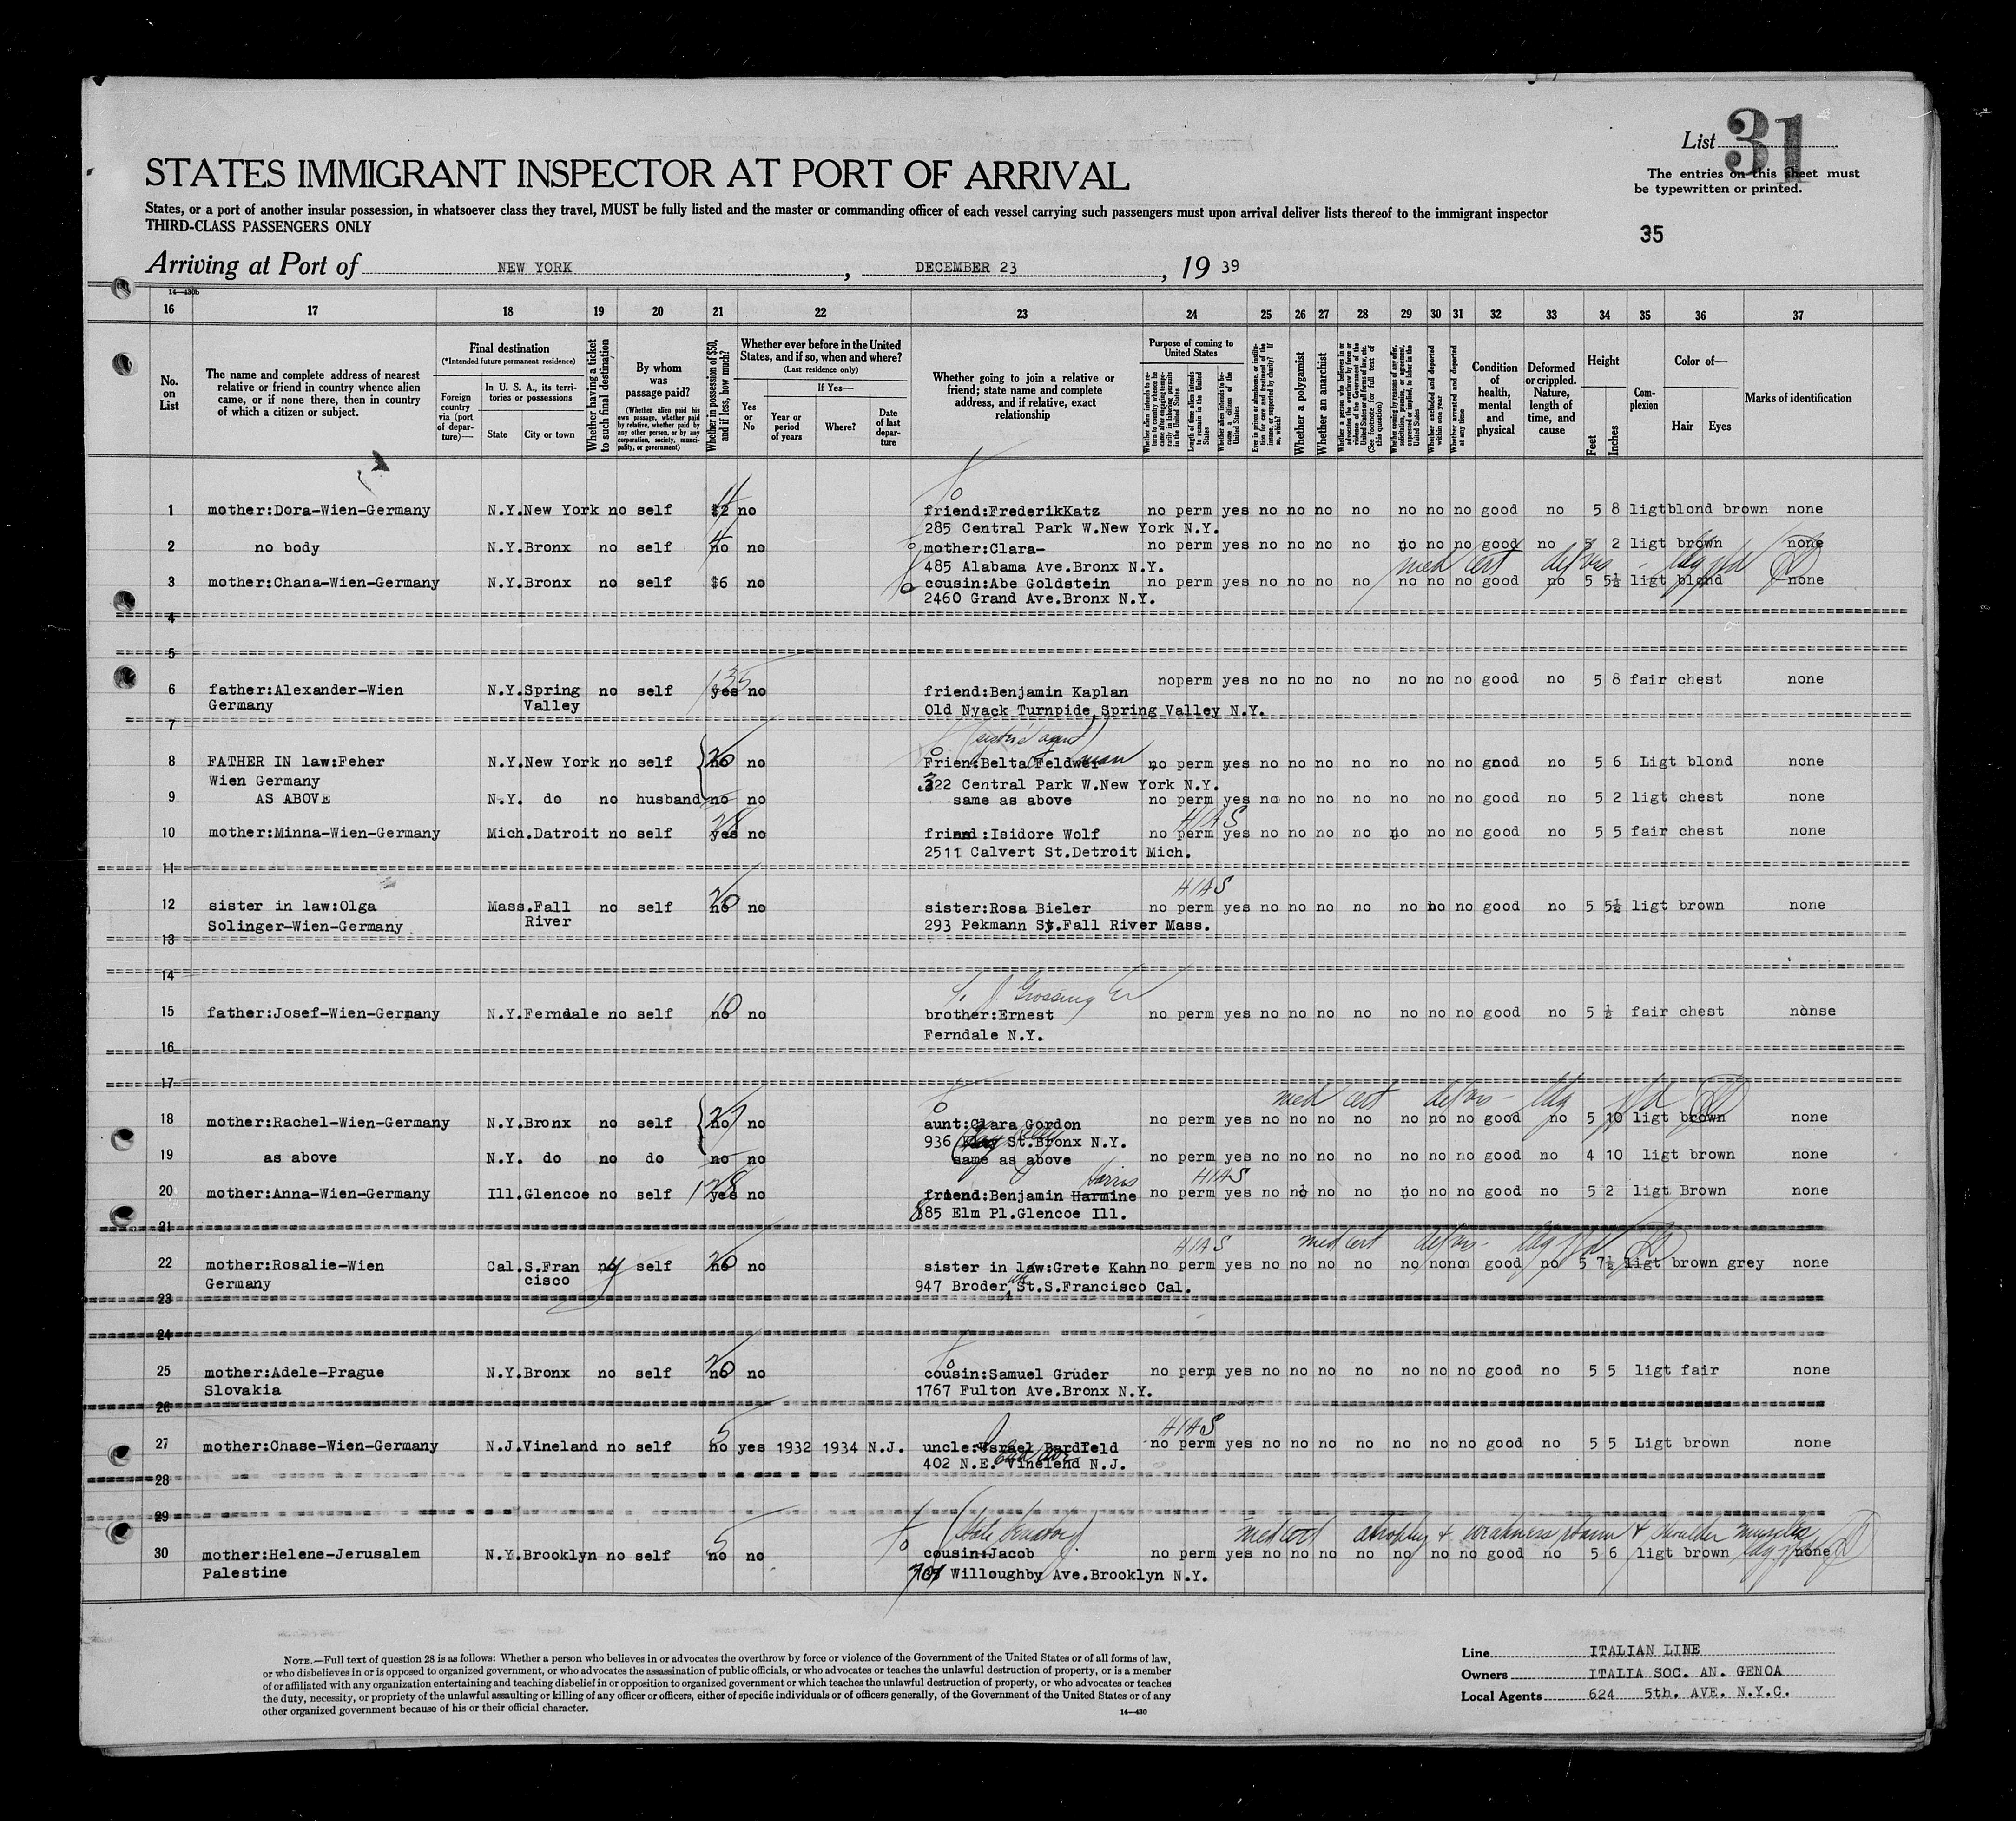 List 31
STATES IMMIGRANT INSPECTOR AT PORT OF ARRIVAL
The entries on this sheet must
be typewritten or printed.
States, or a port of another insular possession, in whatsoever class they travel, MUST be fully listed and the master or commanding officer of each vessel carrying such passengers must upon arrival deliver lists thereof to the immigrant inspector
THIRD-CLASS PASSENGERS ONLY
35
Arriving at Port of NEW YORK, DECEMBER 23, 19 39
14—430b
16 17 18 19 20 21 22 23 24 25 26 27 28 29 30 31 32 33 34 35 36 37
No. on List
The name and complete address of nearest relative or friend in country whence alien came, or if none there, then in country of which a citizen or subject.
Final destination
(*Intended future permanent residence)
Foreign country via (port of departure)—
In U. S. A., its territories or possessions
State
City or town
Whether having a ticket to such final destination
By whom was passage paid?
(Whether alien paid his own passage, whether paid by relative, whether paid by any other person, or by any corporation, society, municipality, or government)
Whether in possession of $50, and if less, how much?
Whether ever before in the United States, and if so, when and where?
(Last residence only)
Yes or No
If Yes—
Year or period of years
Where?
Date of last departure
Whether going to join a relative or friend; state name and complete address, and if relative, exact relationship
Purpose of coming to United States
Length of time alien intends to remain in the United States
Whether alien intends to become a citizen of the United States
Whether a polygamist
Whether an anarchist
Whether arrested and deported at any time
Condition of health, mental and physical
Deformed or crippled. Nature, length of time, and cause
Height
Feet
Inches
Complexion
Color of—
Hair
Eyes
Marks of identification
1 mother:Dora-Wien-Germany N.Y. New York no self $2 no friend:FrederikKatz no perm yes no no no no no no no good no 5 8 ligt blond brown none
285 Central Park W.New York N.Y.
2 no body N.Y. Bronx no self no no mother:Clara- no perm yes no no no no no no no good no 5 2 ligt brown none
485 Alabama Ave.Bronx N.Y.
med cert
3 mother:Chana-Wien-Germany N.Y. Bronx no self $6 no cousin:Abe Goldstein no perm yes no no no no no no no good no 5 5½ ligt blond none
2460 Grand Ave.Bronx N.Y.
4
5
35
6 father:Alexander-Wien N.Y. Spring no self yes no friend:Benjamin Kaplan noperm yes no no no no no no no good no 5 8 fair chest none
Germany Valley Old Nyack Turnpide,Spring Valley N.Y.
7
8 FATHER IN law:Feher N.Y. New York no self no no Frien:Belta no perm yes no no no no no no no good no 5 6 Ligt blond none
Wien Germany 322 Central Park W.New York N.Y.
9 AS ABOVE N.Y. do no husband no no same as above no perm yes no no no no no no no good no 5 2 ligt chest none
HIAS
10 mother:Minna-Wien-Germany Mich. Datroit no self yes no friend:Isidore Wolf no perm yes no no no no no no no good no 5 5 fair chest none
2511 Calvert St.Detroit Mich.
11
HIAS
12 sister in law:Olga Mass. Fall no self no no sister:Rosa Bieler no perm yes no no no no no no no good no 5 5½ ligt brown none
Solinger-Wien-Germany River 293 Pekmann St.Fall River Mass.
13
14
10
15 father:Josef-Wien-Germany N.Y. Ferndale no self no no brother:Ernest no perm yes no no no no no no no good no 5 ½ fair chest nonse
Ferndale N.Y.
16
17
med cert
18 mother:Rachel-Wien-Germany N.Y. Bronx no self no no aunt:Clara Gordon no perm yes no no no no no no no good no 5 10 ligt brown none
936 St.Bronx N.Y.
19 as above N.Y. do no do no no same as above no perm yes no no no no no no no good no 4 10 ligt brown none
Harris HIAS
20 mother:Anna-Wien-Germany Ill. Glencoe no self yes no friend:Benjamin Harmine no perm yes no no no no no no no good no 5 2 ligt Brown none
885 Elm Pl.Glencoe Ill.
21
HIAS med cert
22 mother:Rosalie-Wien Cal. S.Fran self no no sister in law:Grete Kahn no perm yes no no no no no no no good no 5 7½ ligt brown grey none
Germany cisco 947 Broder St.S.Francisco Cal.
23
24
25 mother:Adele-Prague N.Y. Bronx no self no no cousin:Samuel Gruder no perm yes no no no no no no no good no 5 5 ligt fair none
Slovakia 1767 Fulton Ave.Bronx N.Y.
26
5 HIAS
27 mother:Chase-Wien-Germany N.J. Vineland no self no yes 1932 1934 N.J. uncle:Israel Bardfeld no perm yes no no no no no no no good no 5 5 Ligt brown none
402 N.E. Vinelend N.J.
28
29
5 med cert atrophy & weakness shoulder muscles
30 mother:Helene-Jerusalem N.Y. Brooklyn no self no no cousin:Jacob no perm yes no no no no no no no good no 5 6 ligt brown none
Palestine Willoughby Ave.Brooklyn N.Y.
NOTE.—Full text of question 28 is as follows: Whether a person who believes in or advocates the overthrow by force or violence of the Government of the United States or of all forms of law,
or who disbelieves in or is opposed to organized government, or who advocates the assassination of public officials, or who advocates or teaches the unlawful destruction of property, or is a member
of or affiliated with any organization entertaining and teaching disbelief in or opposition to organized government or which teaches the unlawful destruction of property, or who advocates or teaches
the duty, necessity, or propriety of the unlawful assaulting or killing of any officer or officers, either of specific individuals or of officers generally, of the Government of the United States or of any
other organized government because of his or their official character.
14—430
Line ITALIAN LINE
Owners ITALIA SOC. AN. GENOA
Local Agents 624 5th. AVE. N.Y.C.